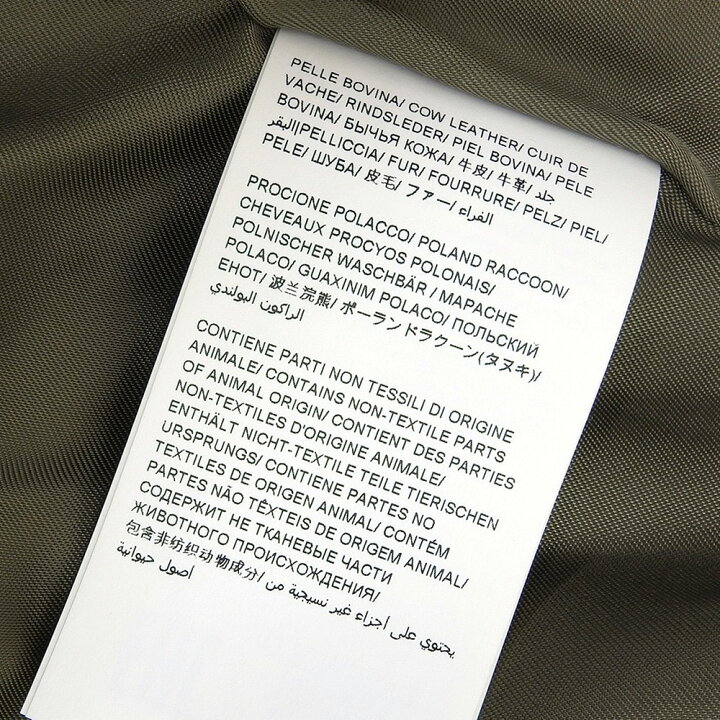 PELLE BOVINA/ COW LEATHER/ CUIR DE
VACHE/ RINDSLEDER/ PIEL BOVINA/ PELE
BOVINA/ БЫЧЬЯ КОЖА/ 牛皮/ 牛革/ جلد
البقر||PELLICCIA/ FUR/ FOURRURE/ PELZ/ PIEL/
PELE/ ШУБА/ 皮毛/ ファー/ الفراء
PROCIONE POLACCO/ POLAND RACCOON/
CHEVEAUX PROCYOS POLONAIS/
POLNISCHER WASCHBÄR / MAPACHE
POLACO/ GUAXINIM POLACO/ ПОЛЬСКИЙ
ЕНОТ/ 波兰浣熊/ ポーランドラクーン(タヌキ)/
الراكون البولندي
CONTIENE PARTI NON TESSILI DI ORIGINE
ANIMALE/ CONTAINS NON-TEXTILE PARTS
OF ANIMAL ORIGIN/ CONTIENT DES PARTIES
NON-TEXTILES D'ORIGINE ANIMALE/
ENTHÄLT NICHT-TEXTILE TEILE TIERISCHEN
URSPRUNGS/ CONTIENE PARTES NO
TEXTILES DE ORIGEN ANIMAL/ CONTÉM
PARTES NÃO TÊXTEIS DE ORIGEM ANIMAL/
СОДЕРЖИТ НЕ ТКАНЕВЫЕ ЧАСТИ
ЖИВОТНОГО ПРОИСХОЖДЕНИЯ/
包含非纺织动物成分/ يحتوي على أجزاء غير نسيجية من
أصول حيوانية